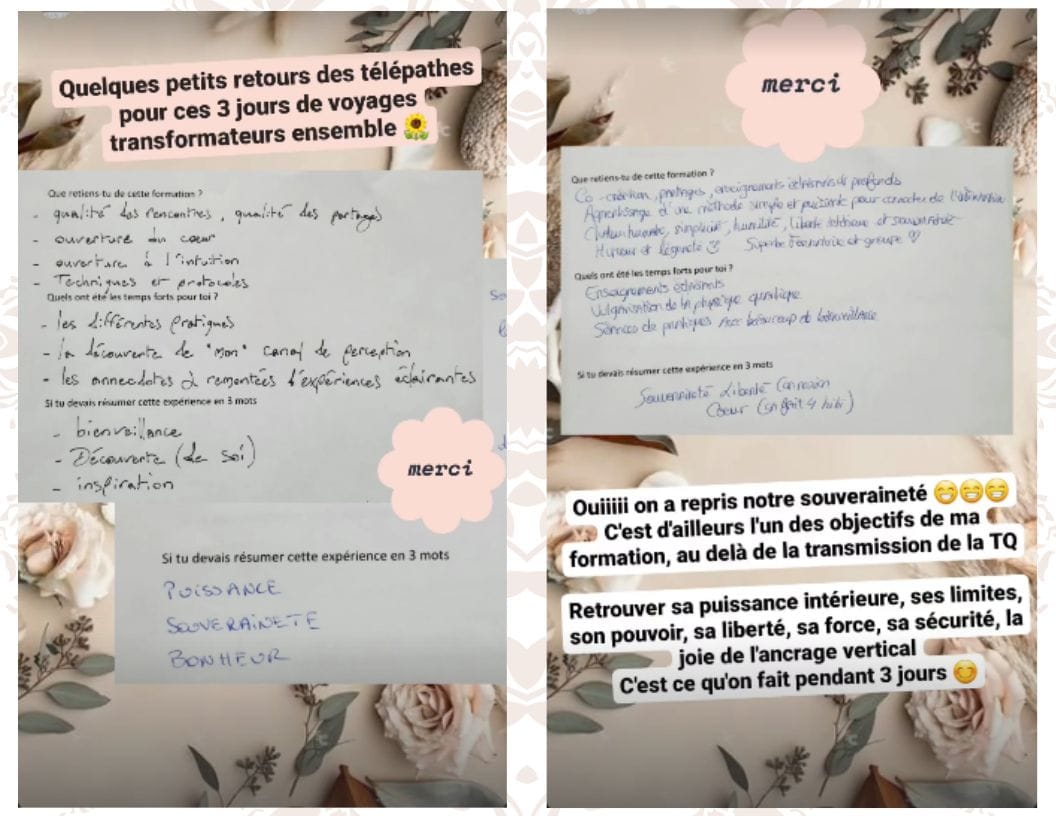 Quelques petits retours des télépathes
pour ces 3 jours de voyages
transformateurs ensemble 🌻
Que retiens-tu de cette formation ?
- qualité des rencontres, qualité des partages
- ouverture du cœur
- ouverture à l'intuition
- Techniques et protocoles
Quels ont été les temps forts pour toi ?
- les différentes pratiques
- la découverte de "mon" canal de perception
- les annecdotes & remontées d'expériences éclairantes
Si tu devais résumer cette expérience en 3 mots
- bienveillance
- Découverte (de soi)
- inspiration
merci
Si tu devais résumer cette expérience en 3 mots
PUISSANCE
SOUVERAINETE
BONHEUR
merci
Que retiens-tu de cette formation ?
Co-création, partages, enseignements et profonds
Apprentissage d'une méthode simple et puissante pour connecter de l'information
simplicité, humilité, liberté intérieure et souveraineté
Humour et légèreté Superbe formatrice et groupe ♡
Quels ont été les temps forts pour toi ?
Enseignements
Vulgarisation de la physique quantique
Séances de pratiques avec beaucoup de bienveillance
Si tu devais résumer cette expérience en 3 mots
Souveraineté Liberté Connexion
Coeur (ça fait 4 hihi)
Ouiiiii on a repris notre souveraineté 😁😁😁
C'est d'ailleurs l'un des objectifs de ma
formation, au delà de la transmission de la TQ
Retrouver sa puissance intérieure, ses limites,
son pouvoir, sa liberté, sa force, sa sécurité, la
joie de l'ancrage vertical
C'est ce qu'on fait pendant 3 jours 😊